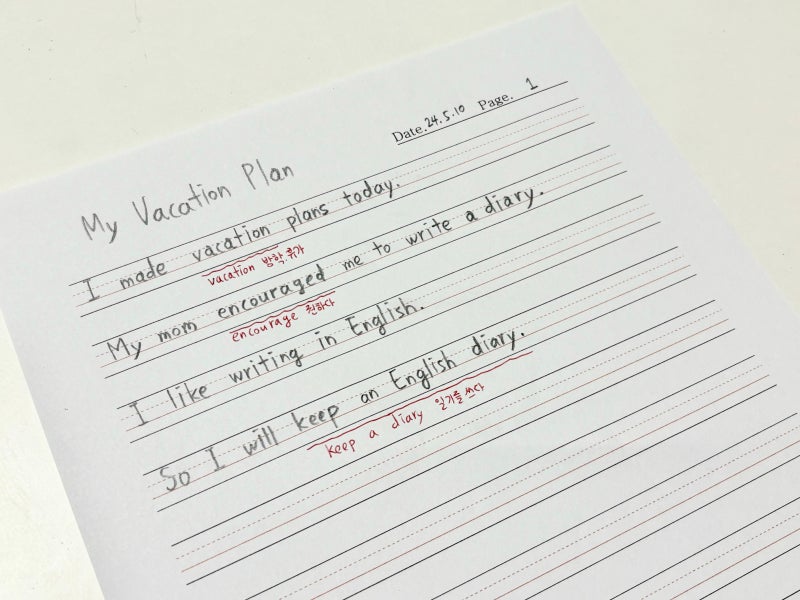 Date. 24.5.10 Page. 1
My Vacation Plan
I made vacation plans today.
vacation 방학.휴가
My mom encouraged me to write a diary.
encourage 권하다
I like writing in English.
So I will keep an English diary.
keep a diary 일기를 쓰다